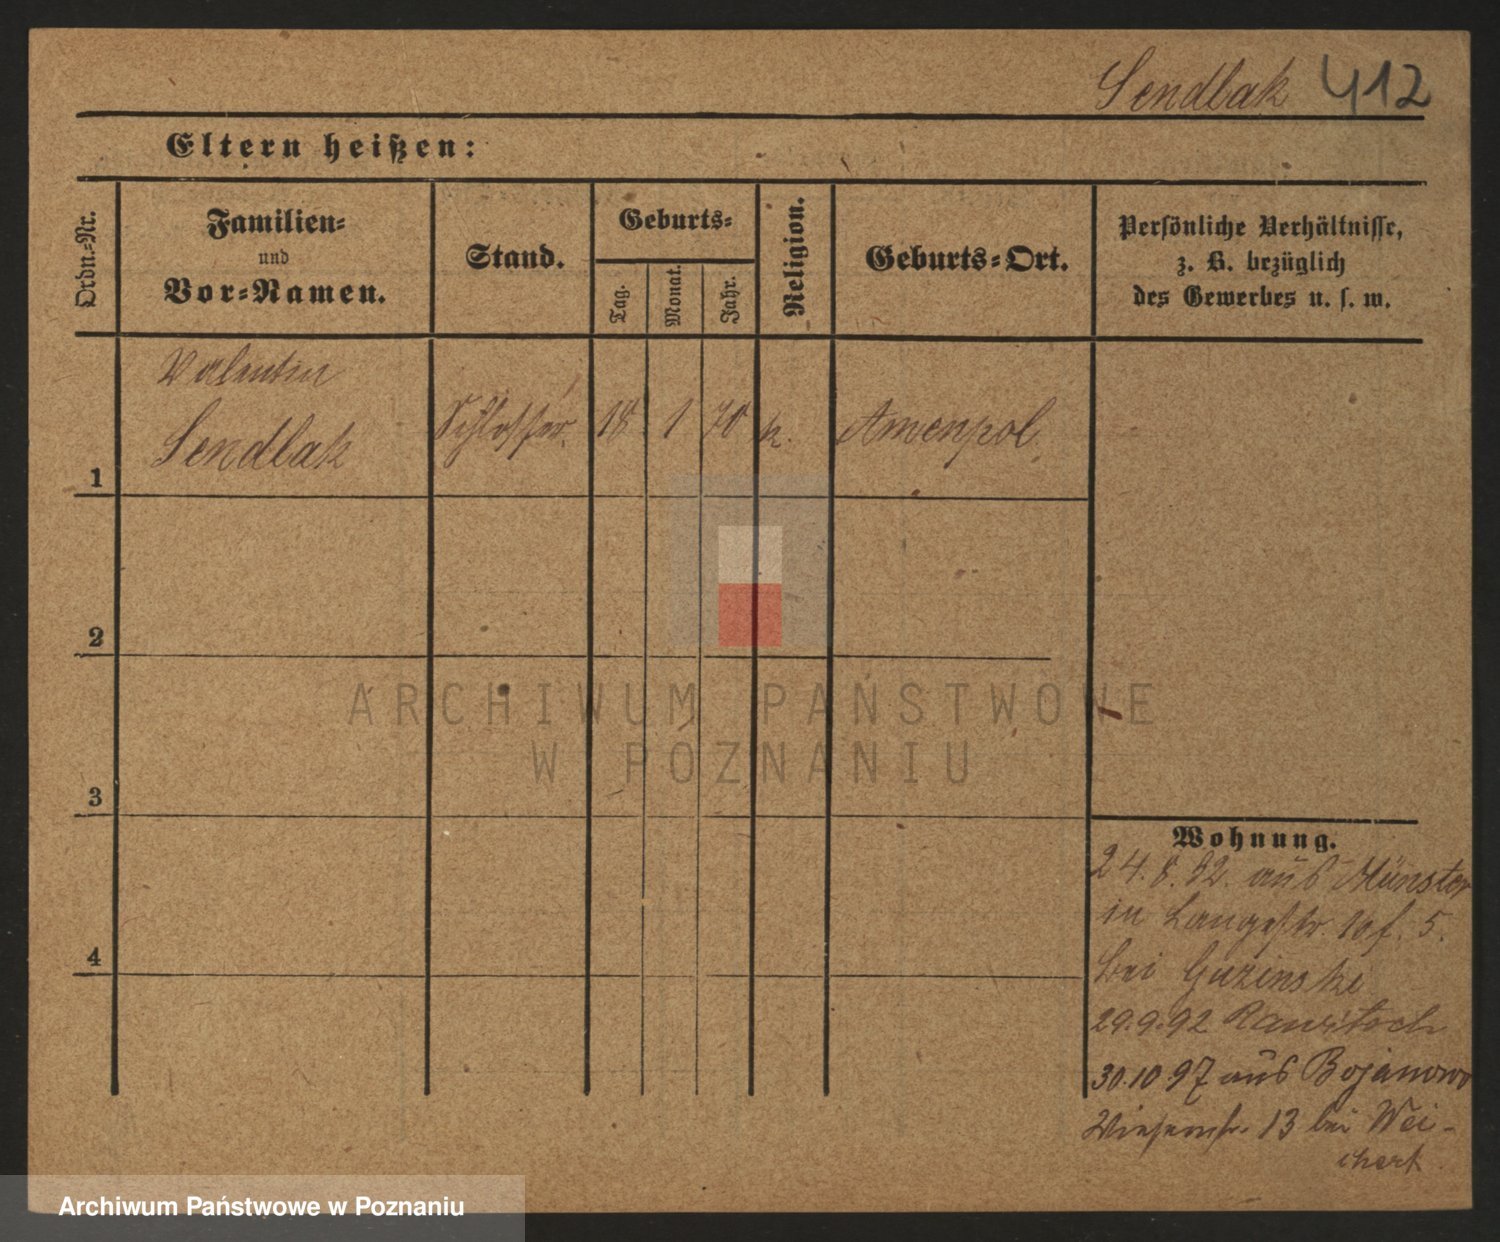 Sendlak 412
Eltern heißen:
Ordn.-Nr.
Familien-
und
Vor-Namen.
Stand.
Geburts-
Tag.
Monat.
Jahr.
Religion.
Geburts-Ort.
Persönliche Verhältnisse,
z. B. bezüglich
des Gewerbes u. s. w.
Valentin
Sendlak
Schlosser. 18 1 70 k. Amenpol
1
2
3
4
ARCHIWUM PAŃSTWOWE
W POZNANIU
Wohnung.
24.8.92. aus Münster
in Langestr. 10 f. 5.
bei Guzinske
29.9.92 Rawitsch
30.10 97 aus Bojanowo
Wiesenstr. 13 bei Wei-
chert
Archiwum Państwowe w Poznaniu